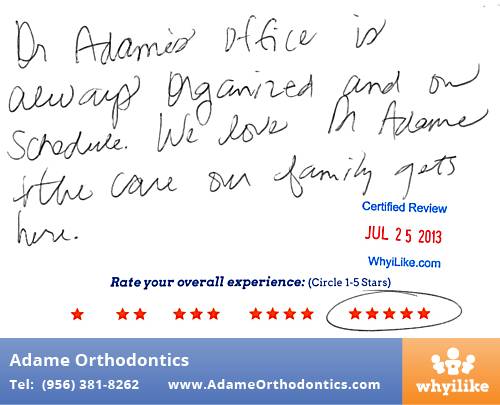 Dr Adame's office is
always organized and on
schedule. We love Dr Adame
& the care our family gets
here.
Certified Review
JUL 25 2013
WhyiLike.com
Rate your overall experience: (Circle 1-5 Stars)
Adame Orthodontics
Tel: (956) 381-8262 www.AdameOrthodontics.com
whyilike